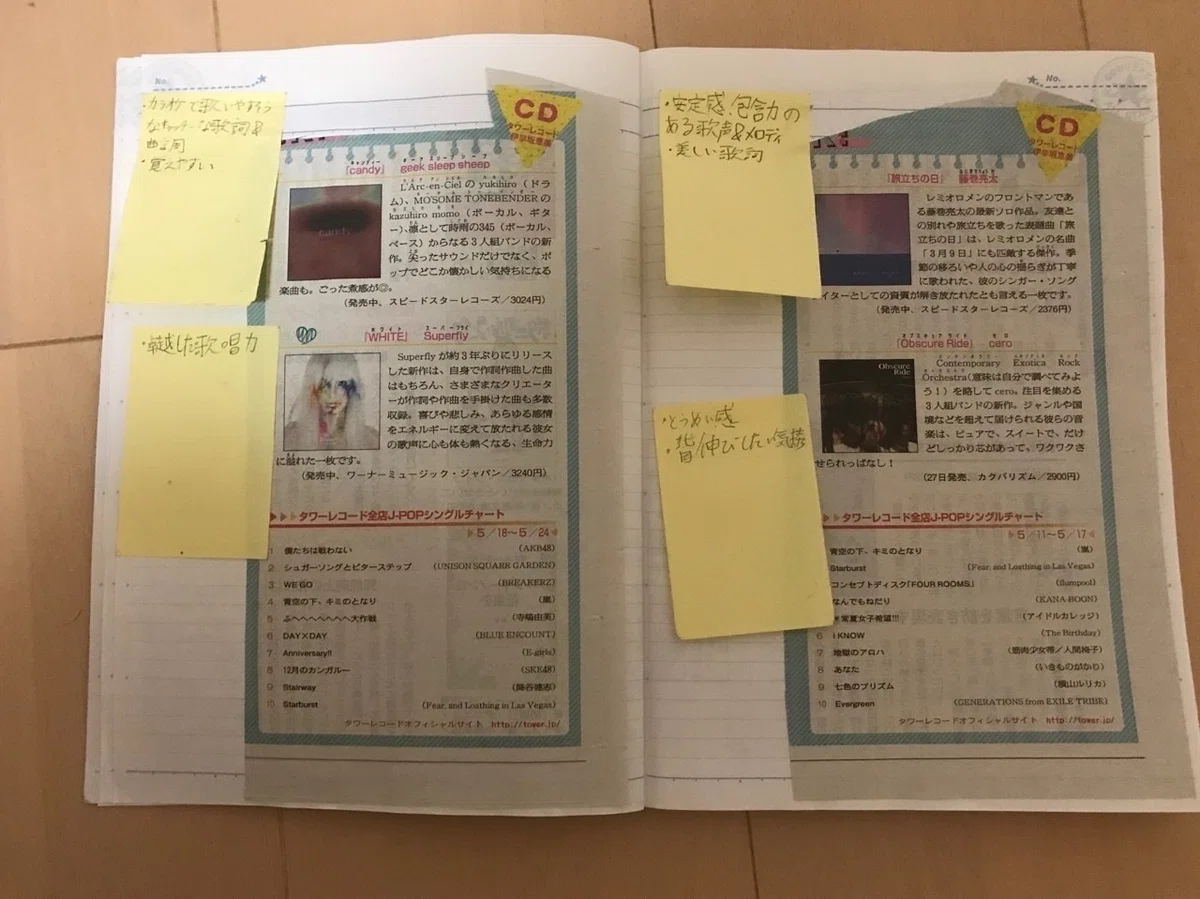 No.
・カラオケで歌いやすそう
なキャッチーな歌詞&
曲調
・覚えやすい
CD
タワーレコード
伊早坂恵美
キャンディー ギーク スリープ シープ
「candy」 geek sleep sheep
L'Arc-en-Cielのyukihiro(ドラ
ム)、MO'SOME TONEBENDERの
kazuhiro momo(ボーカル、ギタ
ー)、凛として時雨の345(ボーカル、
ベース)からなる3人組バンドの新
作。尖ったサウンドだけでなく、ポ
ップでどこか懐かしい気持ちになる
楽曲も。ごった煮感が◎。
(発売中、スピードスターレコーズ/3024円)
candy
・卓越した歌唱力
ホワイト スーパーフライ
「WHITE」 Superfly
Superflyが約3年ぶりにリリース
した新作は、自身で作詞作曲した曲
はもちろん、さまざまなクリエータ
ーが作詞や作曲を手掛けた曲も多数
収録。喜びや悲しみ、あらゆる感情
をエネルギーに変えて放たれる彼女
の歌声に心も体も熱くなる、生命力
に溢れた一枚です。
(発売中、ワーナーミュージック・ジャパン/3240円)
タワーレコード全店J-POPシングルチャート
5/18〜5/24
1 僕たちは戦わない (AKB48)
2 シュガーソングとビターステップ (UNISON SQUARE GARDEN)
3 WE GO (BREAKERZ)
4 青空の下、キミのとなり (嵐)
5 ふへへへへへへ大作戦 (寺嶋由芙)
6 DAY×DAY (BLUE ENCOUNT)
7 Anniversary!! (E-girls)
8 12月のカンガルー (SKE48)
9 Stairway (降谷建志)
10 Starburst (Fear, and Loathing in Las Vegas)
タワーレコードオフィシャルサイト http://tower.jp/
No.
・安定感、包容力の
ある歌声&メロディ
・美しい歌詞
CD
タワーレコード
伊早坂恵美
「旅立ちの日」 藤巻亮太
レミオロメンのフロントマンであ
る藤巻亮太の最新ソロ作品。友達と
の別れや旅立ちを歌った表題曲「旅
立ちの日」は、レミオロメンの名曲
「3月9日」にも匹敵する傑作。季
節の移ろいや人の心の揺らぎが丁寧
に歌われた、彼のシンガー・ソング
イターとしての資質が解き放たれたとも言える一枚です。
(発売中、スピードスターレコーズ/2376円)
・とうめい感
・背伸びしたい気持
オブスキュア ライド セロ
「Obscure Ride」 cero
Contemporary Exotica Rock
Orchestra(意味は自分で調べてみよ
う!)を略してcero。注目を集める
3人組バンドの新作。ジャンルや国
境などを超えて届けられる彼らの音
楽は、ピュアで、スイートで、だけ
どしっかり芯があって、ワクワクさ
せられっぱなし!
(27日発売、カクバリズム/2900円)
Obscure
Ride
タワーレコード全店J-POPシングルチャート
5/11〜5/17
青空の下、キミのとなり (嵐)
Starburst (Fear, and Loathing in Las Vegas)
コンセプトディスク「FOUR ROOMS」 (flumpool)
なんでもねだり (KANA-BOON)
常夏女子希望!!! (アイドルカレッジ)
6 I KNOW (The Birthday)
7 地獄のアロハ (筋肉少女帯/人間椅子)
8 あなた (いきものがかり)
9 七色のプリズム (横山ルリカ)
10 Evergreen (GENERATIONS from EXILE TRIBE)
タワーレコードオフィシャルサイト http://tower.jp/